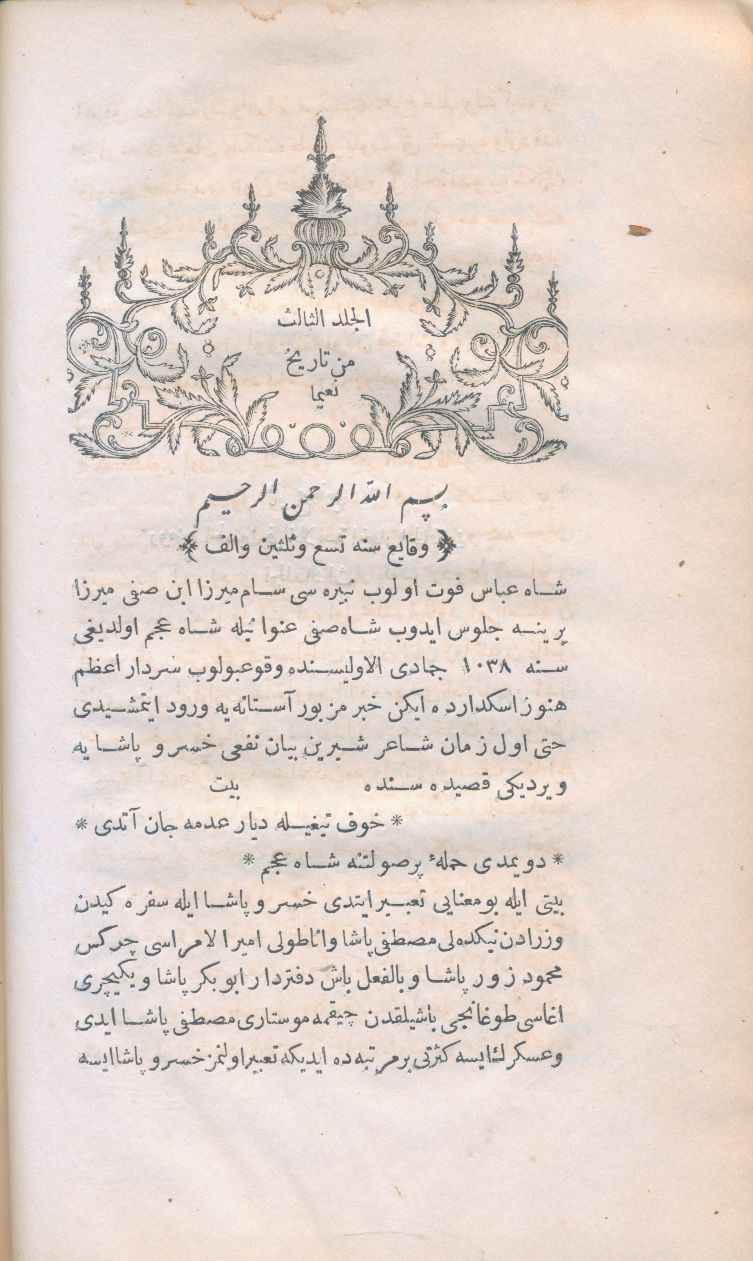 الجلد الثالث
من تاريخ
نعيما
بسم الله الرحمن الرحيم
﴿ وقايع سنه تسع وثلثين والف ﴾
شاه عباس فوت اولوب نبيره سى سام ميرزا ابن صفى ميرزا
يرينه جلوس ايدوب شاه صفى عنوانيله شاه عجم اولديغى
سنه ١٠٣٨ جمادى الاوليسنده وقوعبولوب سردار اعظم
هنوز اسكدارده ايكن خبر مزبور آستانه يه ورود ايتمشيدى
حتى اول زمان شاعر شيرين بيان نفعى خسرو پاشا يه
ويرديكى قصيده سنده بيت
* خوف تيغيله ديار عدمه جان آتدى *
* دويمدى حمله ٔ پرصولتنه شاه عجم *
بيتى ايله بومعنايى تعبير ايتدى خسرو پاشا ايله سفره كيدن
وزرادن نيكده لى مصطفى پاشا واناطولى امير الامراسى چركس
محمود زور پاشا وبالفعل باش دفتردار ابو بكر پاشا ويكيچرى
اغاسى طوغانجى باشيلقدن چيقمه موستارى مصطفى پاشا ايدى
وعسكرك ايسه كثرتى بر مرتبه ده ايديكه تعبير اولنمز خسرو پاشا ايسه